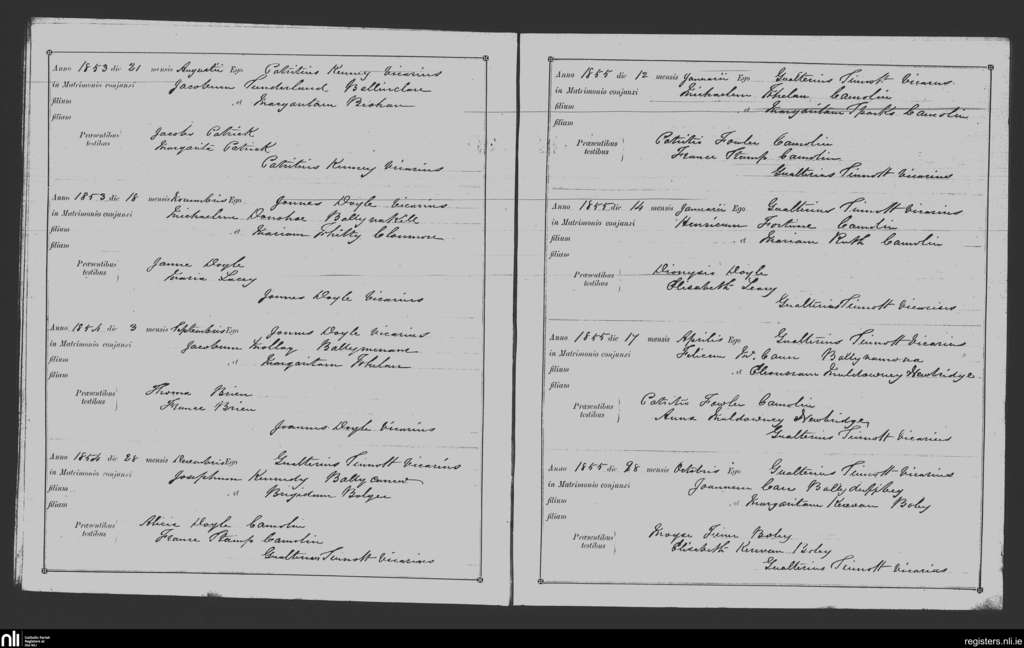 Anno 1853 die 21 mensis Augustii Ego Patritius Kenney Vicarius
in Matrimonio conjunxi Jacobum Sunderland Bellinclare
filium et Margaritam Breehan
filiam
Præsentibus testibus Jacobo Patrick
Margarita Patrick
Patritius Kenney Vicarius
Anno 1853 die 18 mensis Novembris Ego Joannes Doyle Vicarius
in Matrimonio conjunxi Michaelem Donohoe Ballynakill
filium et Mariam Whitty Clonmore
filiam
Præsentibus testibus Janne Doyle
Maria Lacey
Joannes Doyle Vicarius
Anno 1854 die 3 mensis Septembris Ego Joannes Doyle Vicarius
in Matrimonio conjunxi Jacobum Molloy Ballymenane
filium et Margaritam Whelan
filiam
Præsentibus testibus Thoma Brien
France Brien
Joannes Doyle Vicarius
Anno 1854 die 28 mensis Decembris Ego Gualterius Sinnott Vicarius
in Matrimonio conjunxi Josephum Kennedy
filium et Brigidam Bolger
filiam
Præsentibus testibus Alicia Doyle Camolin
France Stamp Camolin
Gualterius Sinnott Vicarius
Anno 1855 die 12 mensis Januarii Ego Gualterius Sinnott Vicarius
in Matrimonio conjunxi Michaelem Whelan Camolin
filium et Margaritam Sparks Camolin
filiam
Præsentibus testibus Patritio Fowler Camolin
France Stamp Camolin
Gualterius Sinnott Vicarius
Anno 1855 die 14 mensis Januarii Ego Gualterius Sinnott Vicarius
in Matrimonio conjunxi Henricum Fortune Camolin
filium et Mariam Ruth Camolin
filiam
Præsentibus testibus Dionysio Doyle
Elisabeth Leary
Gualterius Sinnott Vicarius
Anno 1855 die 17 mensis Aprilis Ego Gualterius Sinnott Vicarius
in Matrimonio conjunxi Felicem McCann
filium et Muldowney Newbridge
filiam
Præsentibus testibus Patritio Fowler Camolin
Anna Muldowney Newbridge
Gualterius Sinnott Vicarius
Anno 1855 die 28 mensis Octobris Ego Gualterius Sinnott Vicarius
in Matrimonio conjunxi Joannem Carr
filium et Margaritam Kirwan Boley
filiam
Præsentibus testibus Moyse Boley
Elisabeth Kirwan Boley
Gualterius Sinnott Vicarius
nli Catholic Parish Registers at the NLI
registers.nli.ie